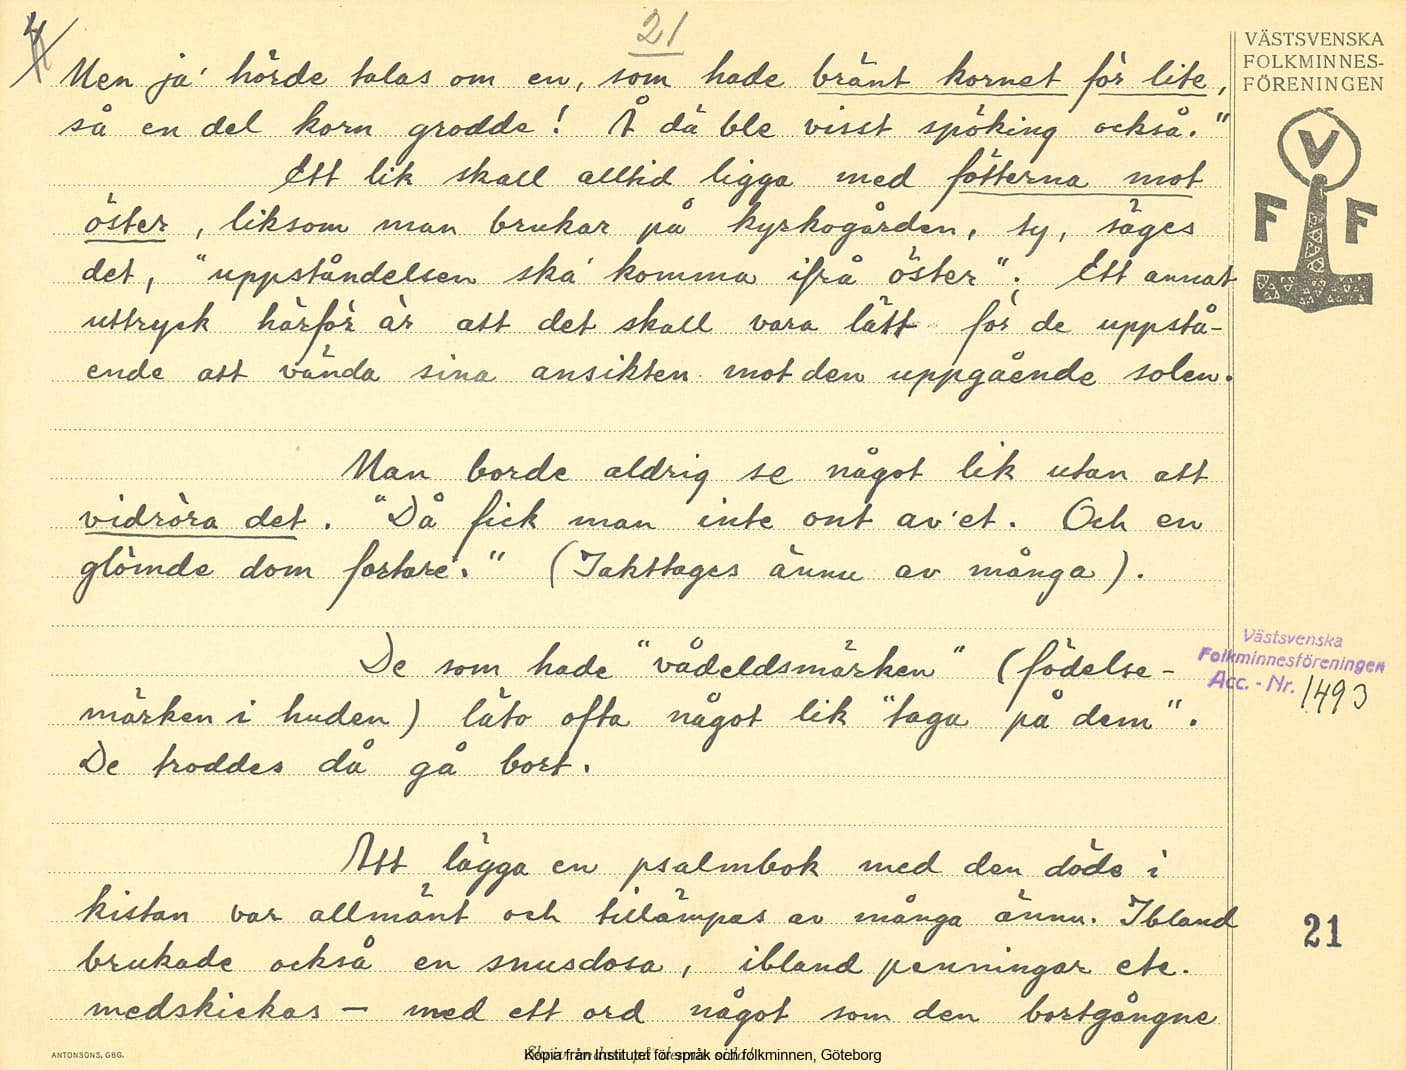 21
VÄSTSVENSKA
FOLKMINNES-
FÖRENINGEN
V
F F
Men ja' hörde talas om en, som hade bränt kornet för lite,
så en del korn grodde! Å då ble visst spöking också."
Ett lik skall alltid ligga med fötterna mot
öster, liksom man brukar på kyrkogården, ty, säges
det, "uppståndelsen ska' komma ifrå öster". Ett annat
uttryck härför är att det skall vara lätt för de uppstå-
ende att vända sina ansikten mot den uppgående solen.
Man borde aldrig se något lik utan att
vidröra det. "Då fick man inte ont av'et. Och en
glömde dom fortare." (Iakttages ännu av många).
De som hade "vådeldsmärken" (födelse-
märken i huden) läto ofta något lik "taga på dem".
De troddes då gå bort.
Västsvenska
Folkminnesföreningen
Acc. - Nr. 1493
Att lägga en psalmbok med den döde i
kistan var allmänt och tillämpas av många ännu. Ibland
brukade också en snusdosa, ibland penningar etc.
medskickas — med ett ord något som den bortgångne
21
ANTONSONS, GBG.
Kopia från Institutet för språk och folkminnen, Göteborg